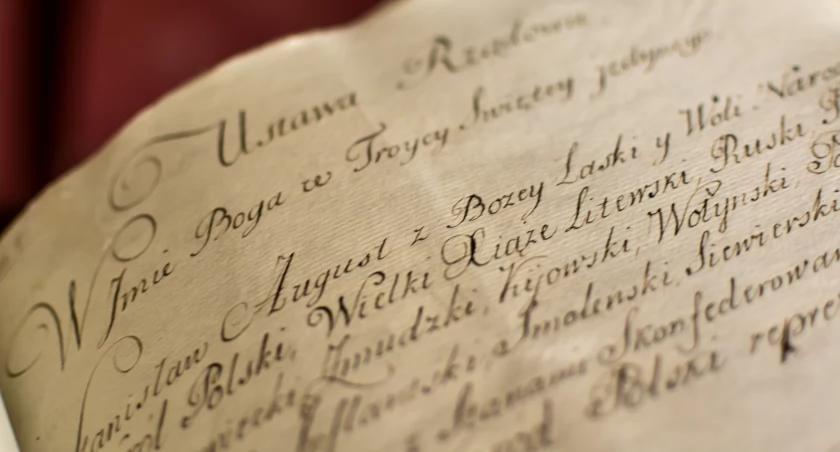 Ustawa Rządowa
W Jmie Boga w Troycy Swiętey jedynego
Stanisław August z Bozey Łaski y Woli Narod
Król Polski, Wielki Xiąże Litewski, Ruski,
Zmudzki, Kijowski, Wołynski,
Inflantski, Smolenski, Siewierski
z Stanami Skonfederowan
Polski repre